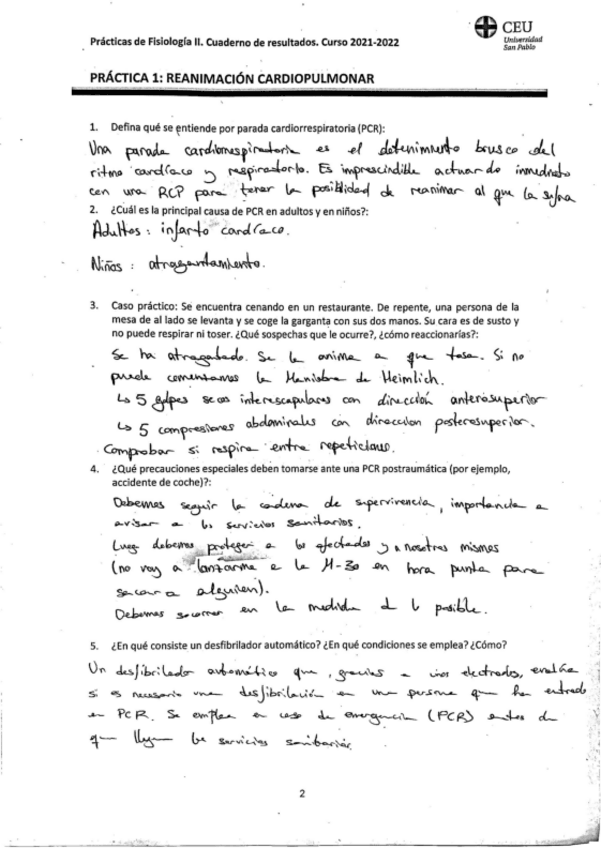 Prácticas de Fisiología II. Cuaderno de resultados. Curso 2021-2022
CEU
Universidad
San Pablo
PRÁCTICA 1: REANIMACIÓN CARDIOPULMONAR
1. Defina qué se entiende por parada cardiorrespiratoria (PCR):
Una parada cardiorrespiratoria es el detenimiento brusco del
ritmo cardíaco y respiratorio. Es imprescindible actuar de inmediato
con una RCP para tener la posibilidad de reanimar al que la sufra
2. ¿Cuál es la principal causa de PCR en adultos y en niños?:
Adultos: infarto cardíaco.
Niños: atragantamiento.
3. Caso práctico: Se encuentra cenando en un restaurante. De repente, una persona de la
mesa de al lado se levanta y se coge la garganta con sus dos manos. Su cara es de susto y
no puede respirar ni toser. ¿Qué sospechas que le ocurre?, ¿cómo reaccionarías?:
Se ha atragantado. Se le anima a que tosa. Si no
puede comenzamos la Maniobra de Heimlich.
↳ 5 golpes secos interescapulares con dirección anterosuperior
↳ 5 compresiones abdominales con direccion posterosuperior.
Comprobar si respira entre repeticiones.
4. ¿Qué precauciones especiales deben tomarse ante una PCR postraumática (por ejemplo,
accidente de coche)?:
Debemos seguir la cadena de supervivencia, importancia a
avisar a los servicios sanitarios.
Luego debemos proteger a los afectados y a nosotros mismos
(no voy a lanzarme a la M-30 en hora punta para
sacar a alguien).
Debemos socorrer en la medida de lo posible.
5. ¿En qué consiste un desfibrilador automático? ¿En qué condiciones se emplea? ¿Cómo?
Un desfibrilador automático que, gracias a unos electrodos, evalúa
si es necesario una desfibrilación en una persona que ha entrado
en PCR. Se emplea en caso de emergencia (PCR) antes de
que lleguen los servicios sanitarios.
2